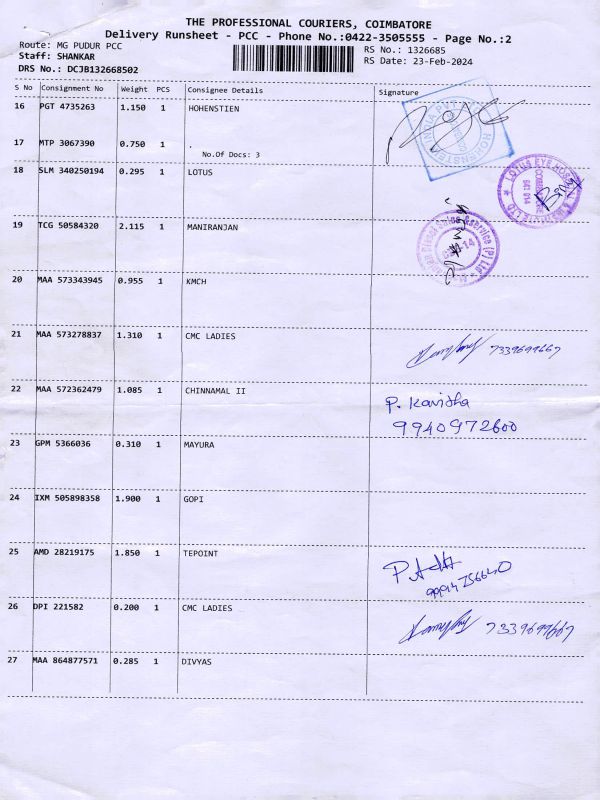 THE PROFESSIONAL COURIERS, COIMBATORE
Delivery Runsheet - PCC - Phone No.:0422-3505555 - Page No.:2
Route: MG PUDUR PCC
RS No.: 1326685
Staff: SHANKAR
RS Date: 23-Feb-2024
DRS No.: DCJB132668502
S No Consignment No Weight PCS Consignee Details Signature
16 PGT 4735263 1.150 1 HOHENSTIEN
17 MTP 3067390 0.750 1 .
No.Of Docs: 3
18 SLM 340250194 0.295 1 LOTUS
LOTUS EYE HOSPITAL
19 TCG 50584320 2.115 1 MANIRANJAN
20 MAA 573343945 0.955 1 KMCH
21 MAA 573278837 1.310 1 CMC LADIES
22 MAA 572362479 1.085 1 CHINNAMAL II
P. Kavitha
9940972600
23 GPM 5366036 0.310 1 MAYURA
24 IXM 505898358 1.900 1 GOPI
25 AMD 28219175 1.850 1 TEPOINT
26 DPI 221582 0.200 1 CMC LADIES
27 MAA 864877571 0.285 1 DIVYAS